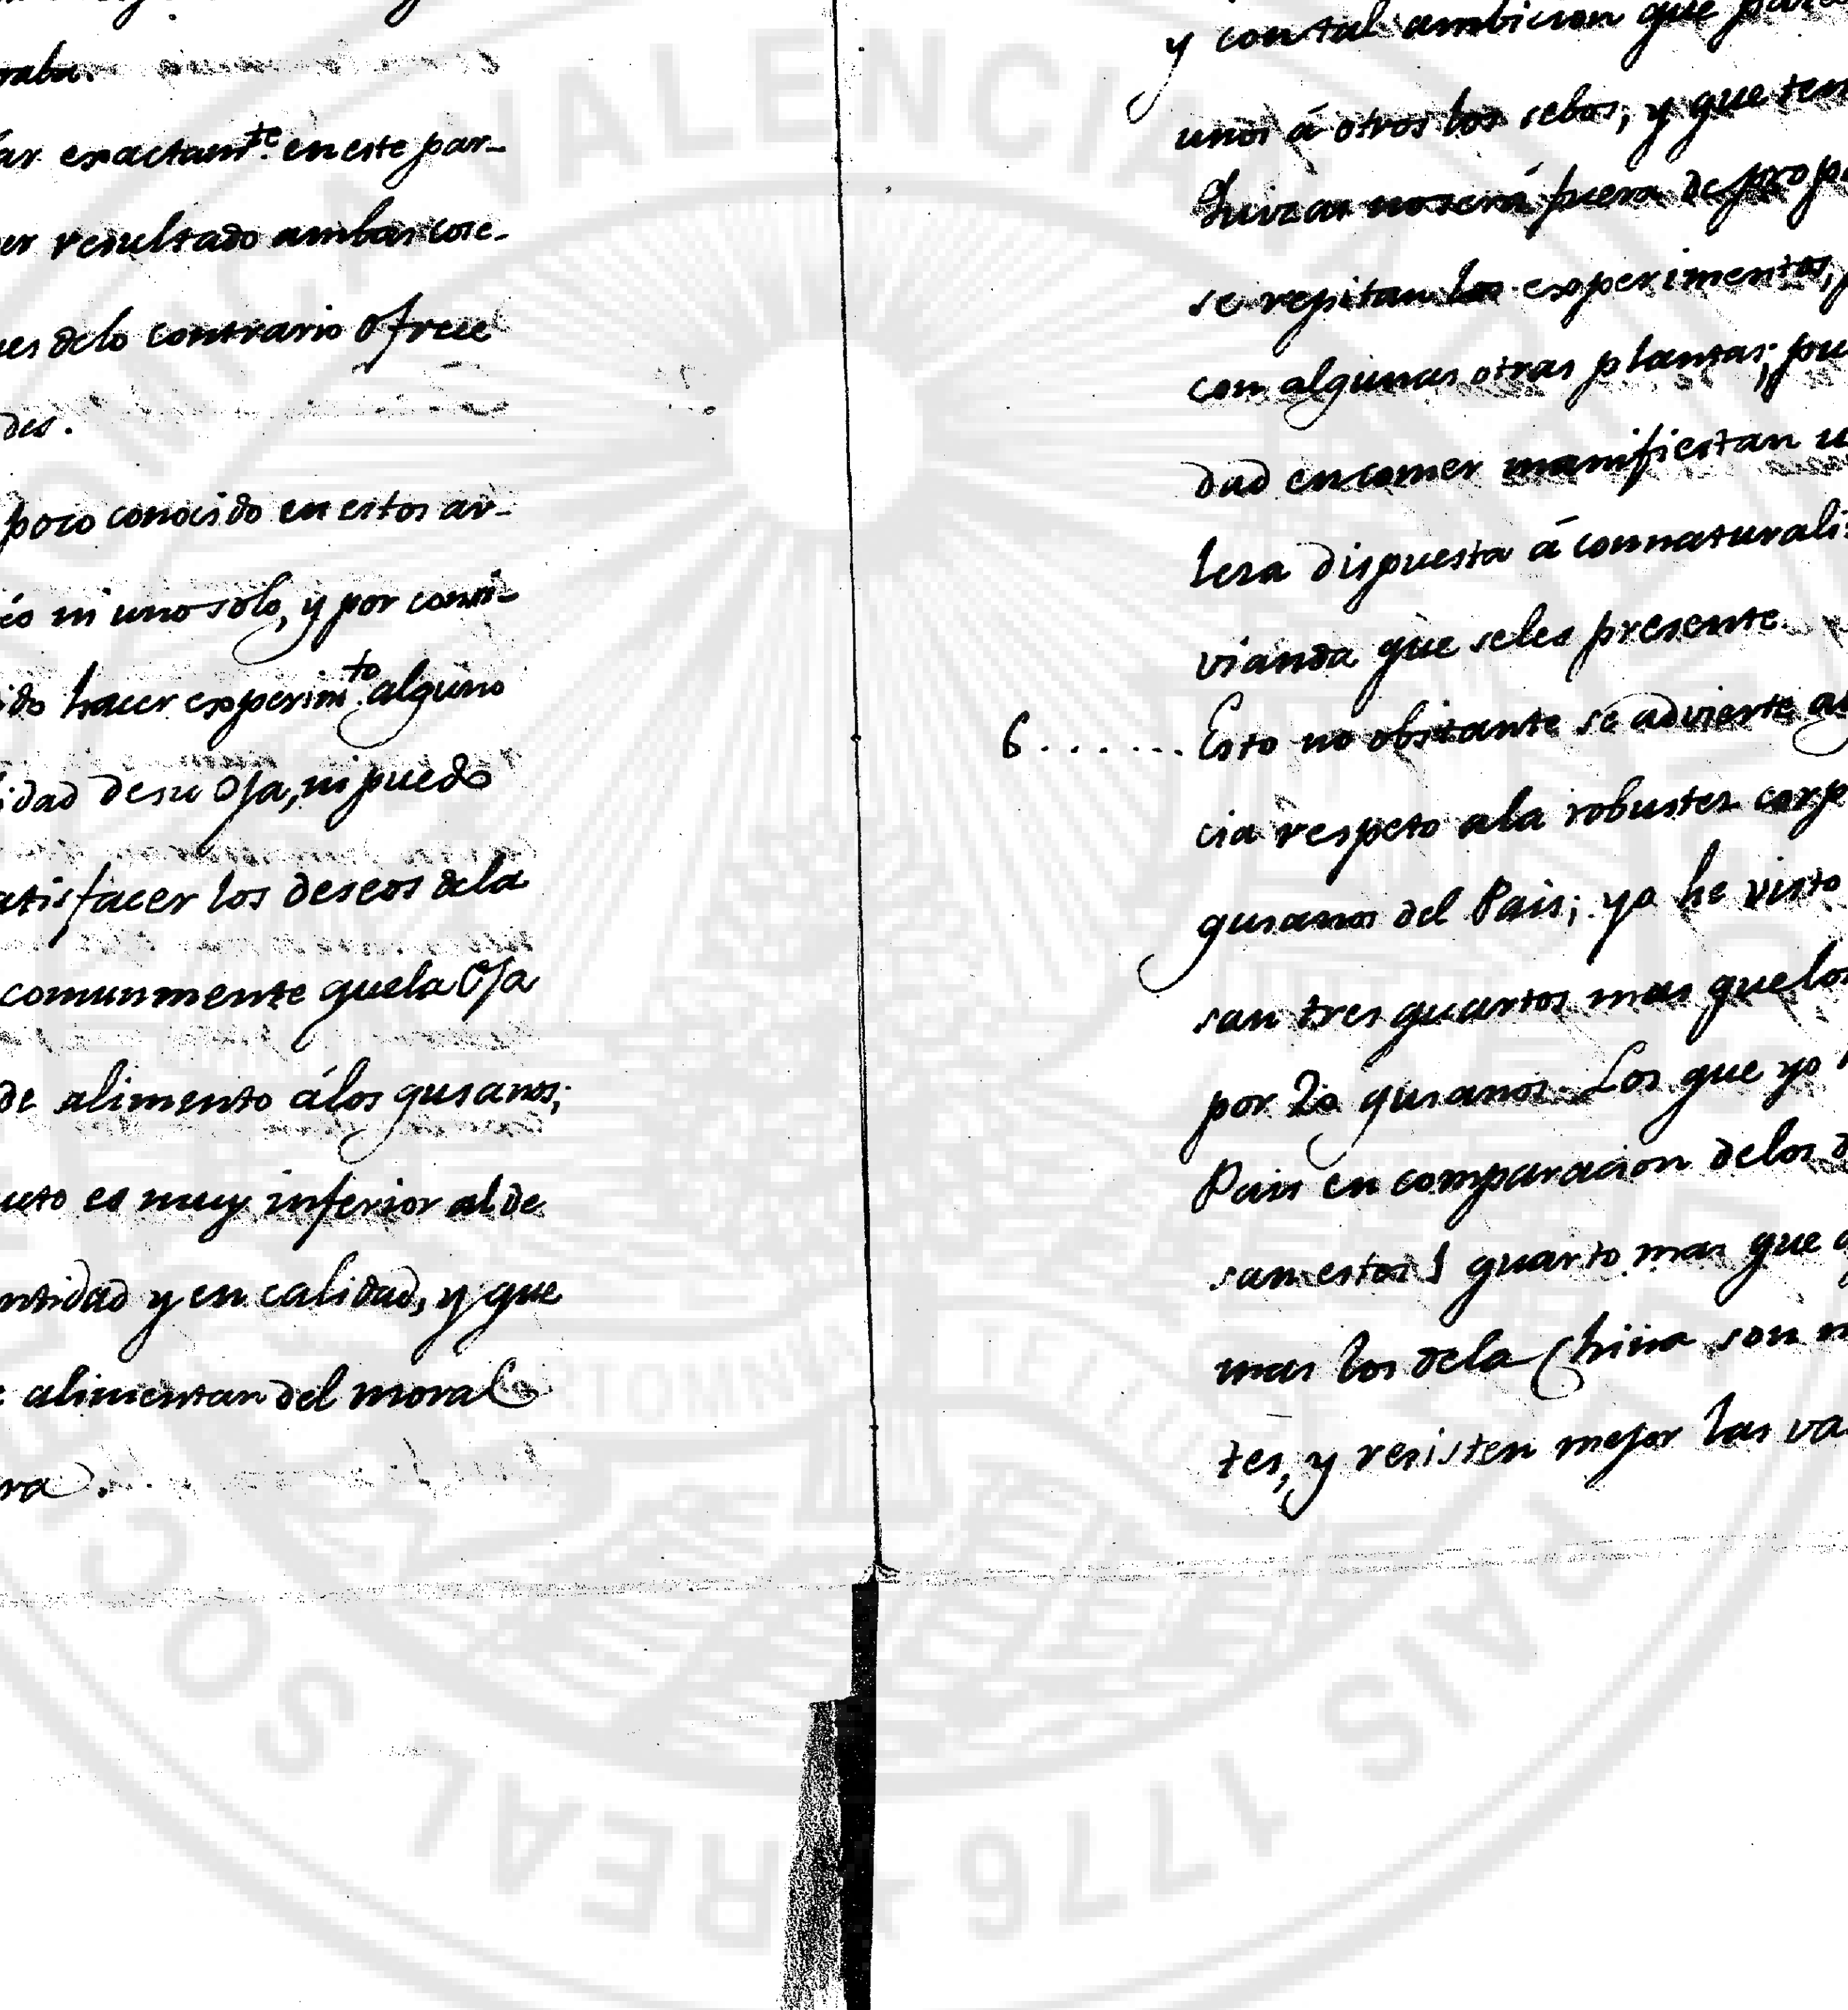 raba.
ar exactam.te en este par-
er resultado ambas cose-
ues delo contrario ofrece
des.
poco conocido en estos ar-
ni uno solo, y por consi-
ido hacer experim.to alguno
idad desu Oja, ni puedo
atisfacer los deseos dela
comunmente quela Oja
de alimento álos gusanos;
ucto es muy inferior al de
ntidad y en calidad, y que
e alimentan del moral
ra.
y con tal ambicion que
unos á otros los sebos, y que ten
Quizas no será fuera de prop
se repitan los experimentos,
con algunas otras plantas; pu
dad en comer manifiestan u
leza dispuesta á connaturali
vianda que seles presente
6....... Esto no obstante se advierte
cia respeto ala robustez corp
gusanos del Pais; yo he visto
san tres quartos mas quelos
por 20 gusanos. Los que yo
Pais en comparacion delos d
san estos 1 quarto mas que
mas los dela China son m
tes, y resisten mejor las va
VALENCIA
REAL SOC
1776
PAIS